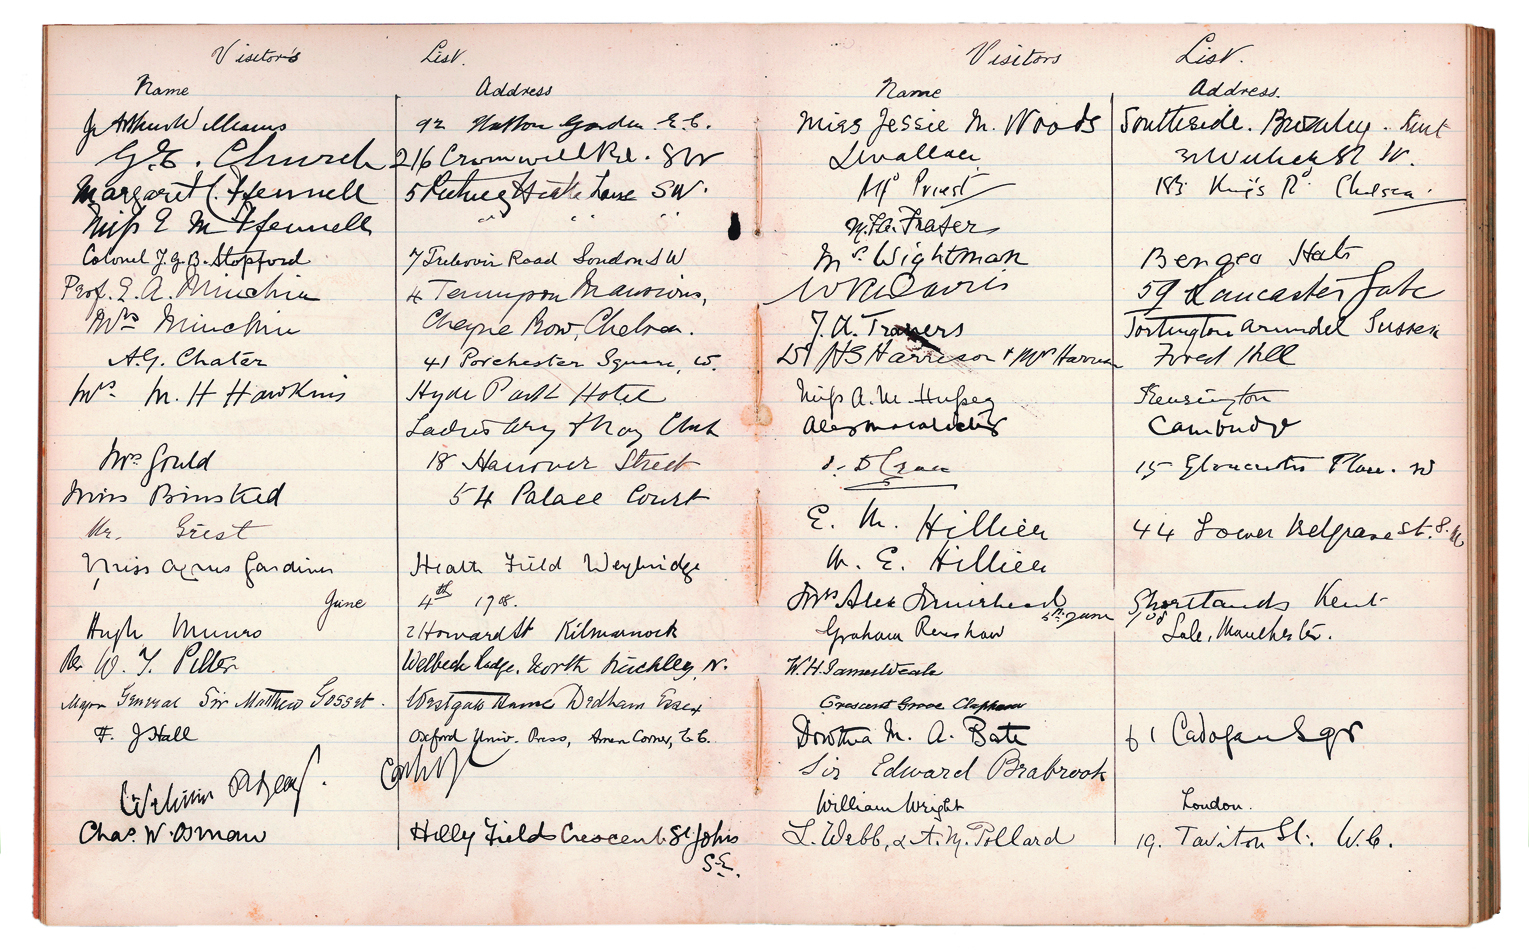 Visitor's List.
Name Address
J. Arthur Williams 92 Hatton Garden. E.C.
G. E. Church 216 Cromwell Rd. SW
Margaret C. Ffennell 5 Putney Heath Lane SW.
Miss E M Ffennell " " "
Colonel J. G. B. Stopford 7 Trebovir Road London SW
Prof. E. A. Minchin 4 Tennyson Mansions,
Mrs Minchin Cheyne Row, Chelsea.
A.G. Chater 41 Porchester Square, W.
Mrs. M. H Hawkins Hyde Park Hotel
Ladies Army & Navy Club
Mrs. Gould 18 Hanover Street
Miss Binsted 54 Palace Court
Mr. Grist
Miss Agnes Gardiner Heath Field Weybridge
June 4th 1908.
Hugh Munro 2 Howard St Kilmarnock
Rev W. J. Piller Welbeck Lodge, North Finchley, N.
Major General Sir Matthew Gosset. Westgate House Dedham Essex
F. J Hall Oxford Univ. Press, Amen Corner, E.C.
William
Chas. W. Osman Hilly Fields Crescent. St Johns
S.E.
Visitors List.
Name Address.
Miss Jessie M. Woods Southside. Bromley. Kent
L Wallace 3 St W.
A Priest 183 King's Rd. Chelsea.
Fraser
Mrs. Wightman Bengeo Herts
W Davis 59 Lancaster Gate
J. A. Travers Tortington Arundel Sussex
Dr H S Harrison & Mrs Harrison Forest Hill
Miss A. M. Hussey Kensington
Alex Macalister Cambridge
15 Gloucester Place. W
E. M. Hillier 44 Lower Belgrave St. S.W
M. E. Hillier
Mrs Alex Muirhead Shortlands Kent
5th June /08
Graham Renshaw Sale, Manchester.
W. H. James Weale
Crescent Grove Clapham
Dorothea M. A. Bate 61 Cadogan Sqr
Sir Edward Brabrook
William Wright London.
L. Webb, & A. M. Pollard 19. Taviton St. W.C.